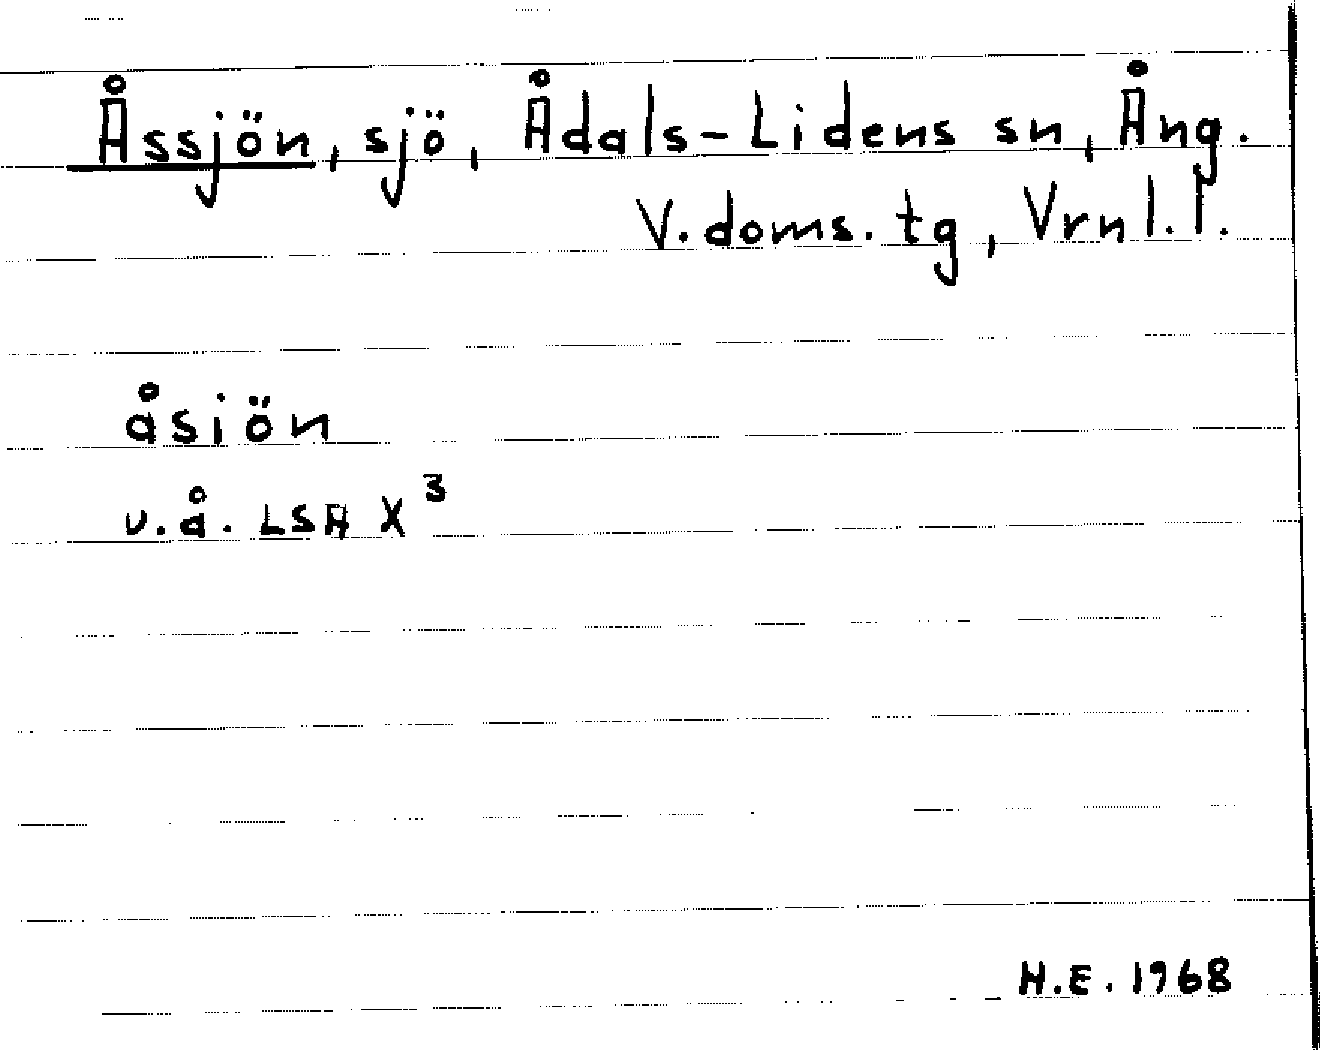 Åssjön, sjö, Ådals-Lidens sn, Ång.
V. doms. tg, Vrnl. l.
åsiön
u.å. LSA X³
H.E. 1968